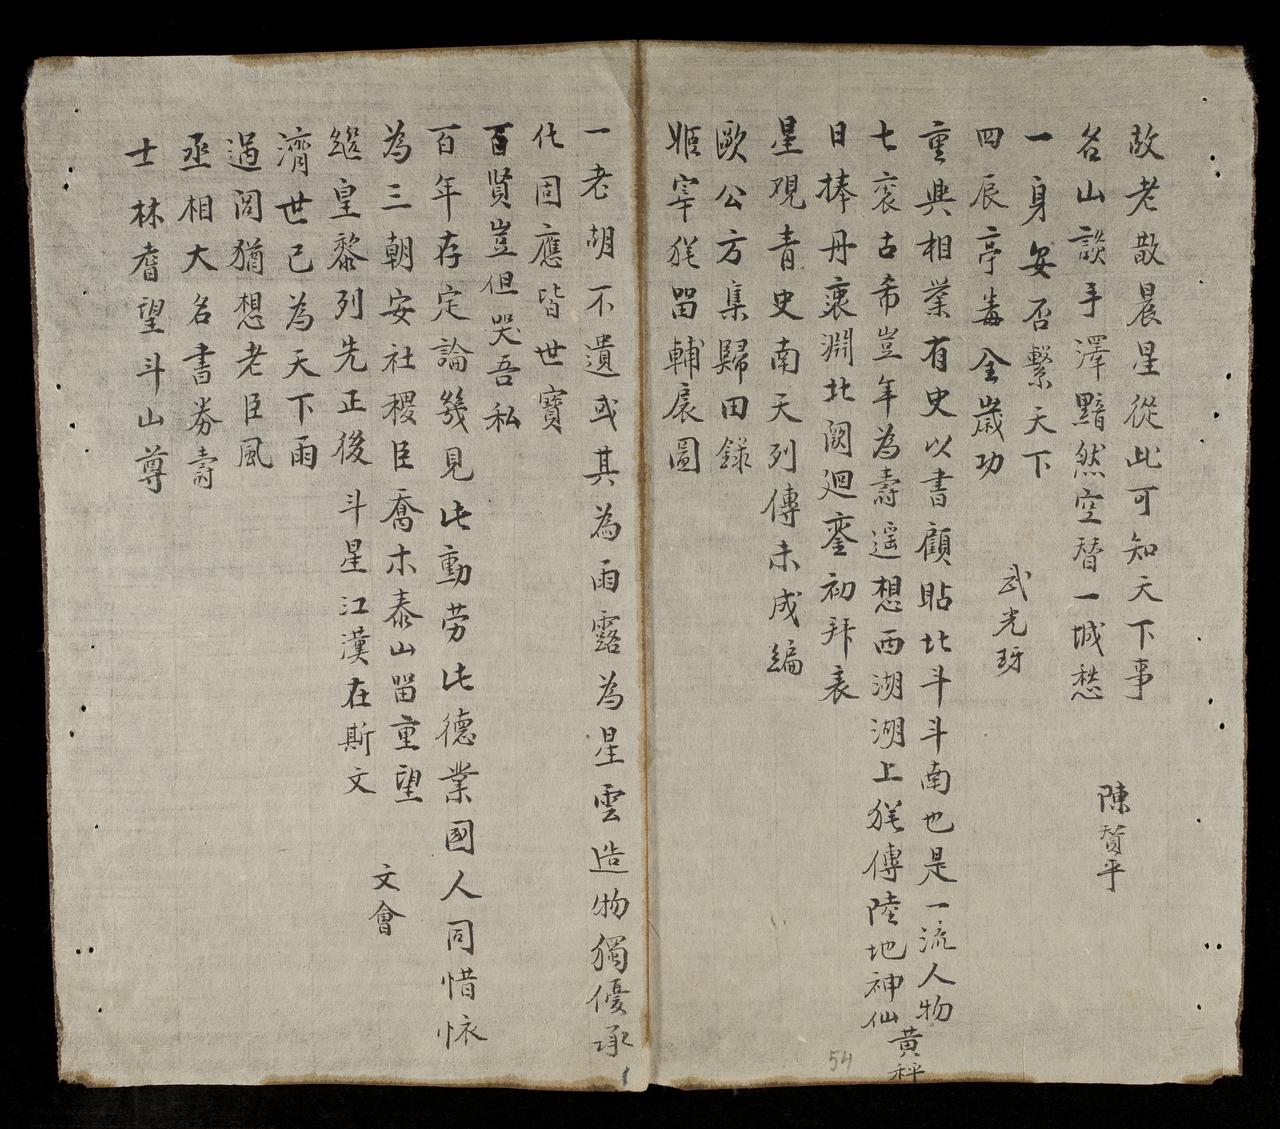 故老散晨星從此可知天下事
名山談手澤黯然空替一城愁
陳賛平
一身安否繫天下
四辰亭毒全歲功
武光玡
重興相業有史以書顧貼北斗斗南也是一流人物
七袠古希豈年為壽遥想西湖湖上猶傳陸地神仙
黄秤
日捧丹衷淵北闕廻鑾初拜表
星硯青史南天列傳未成編
歐公方集歸田錄
姬宰猶畱輔扆圖
一老胡不遺或其為雨露為星雲造物獨優承
化固應皆世寶
百賢豈但哭吾私
百年存定論幾見此勳劳此德業國人同惜
為三朝安社稷臣喬木泰山畱重望
繼皇黎列先正後斗星江漢在斯文
文會
濟世已為天下雨
過閱猶想老臣風
丞相大名書券壽
士林耆望斗山尊
54